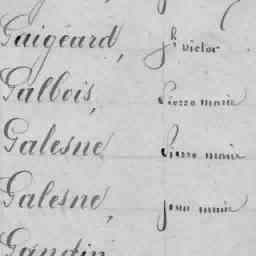 Gaigéard, Jh victor
Galbois, Pierre marie
Galesne Pierre marie
Galesne, jean marie
Gandin